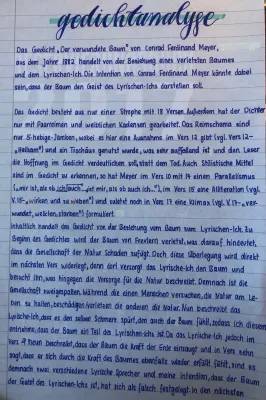 gedichtanalyse
Das Gedicht „Der verwundete Baum" von Conrad Ferdinand Meyer,
aus dem Jahre 1882 handelt von der Beziehung eines verletzten Baumes
und dem Lyrischen-Ich. Die Intention von Conrad Ferdinand Meyer könnte dabei
sein, dass der Baum den Geist des Lyrischen-Ichs darstellen soll.
Das Gedicht besteht aus nur einer Strophe mit 18 Versen. Außerdem hat der Dichter
nur mit Paarreimen und weiblichen Kadenzen gearbeitet. Das Reimschema sind
nur 5-hebige-Jamben, wobei es hier eine Ausnahme im Vers 12 gibt (vgl. Vers 12-
und ein Trochäus genutzt wurde, was sehr auffallend ist und den Leser
die Hoffnung im Gedicht verdeutlichen soll, statt dem Tod. Auch Stilistische Mittel
sind im Gedicht zu erkennen, so hat Meyer im Vers 10 mit 14 einen Parallelismus
(„mir ist, als ob ich", „ist mir, als ob auch ich"), im Vers 15 eine Alliteration (vgl.
V.15- „wirken und") und zuletzt noch in Vers 17 eine Klimax (vgl. V.17- „ver-
wundet,") formuliert.
Inhaltlich handelt das Gedicht von der Beziehung vom Baum zum Lyrischen-Ich. Zu
Beginn des Gedichtes wird der Baum von Frevlern verletzt, was darauf hindeutet,
dass die Gesellschaft der Natur Schaden zufügt. Doch diese Überlegung wird direkt
im nächsten Vers widerlegt, denn dort versorgt das Lyrische-Ich den Baum und
besucht ihn, was hingegen die Vorsorge für die Natur beschreibt. Demnach ist die
Gesellschaft zweigespalten. Während die einen Menschen versuchen, die Natur am Le-
ben zu halten, beschädigen/verletzen die anderen die Natur. Nun beschreibt das
Lyrische-Ich, dass es den selben Schmerz spürt, den auch der Baum fühlt, sodass ich diesem
entnehme, dass der Baum ein Teil des Lyrischen-Ichs ist. Da das Lyrische-Ich jedoch im
Vers 9 Neun beschreibt, dass der Baum die Kraft der Erde einsaugt und in Vers zehn
sagt, dass er sich durch die Kraft des Baumes ebenfalls wieder erfüllt fühlt, sind es
demnach zwei verschiedene Lyrische Sprecher und meine Intention, dass der Baum
der Geist des Lyrischen-Ichs ist, hat sich als falsch festgelegt. In den nächsten